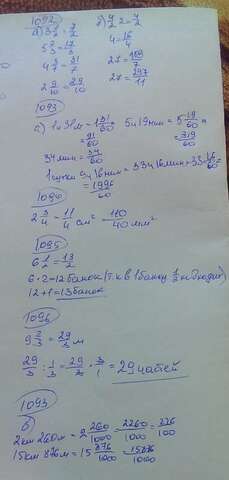 1092
а) 3 1/2 = 7/2
б) 7/2 2 = 4/2
5 2/3 = 17/3
4 = 16/4
4 3/7 = 31/7
27 = 189/7
2 9/10 = 29/10
27 = 297/11
1093
а) 1ч 31м = 1 31/60 = 91/60
5ч 19мин = 5 19/60 = 319/60
34мин = 34/60
1сутки 9ч 16мин = 33ч 16мин = 33 16/60 = 1996/60
1094
2 3/4 = 11/4 см² = 110/40 мм²
1095
6 1/2 = 13/2
6 · 2 = 12 банок (т.к в 1 банку 1/2 кг
12 + 1 = 13 банок
1096
9 2/3 = 29/3 м
29/3 : 1/3 = 29/3 · 3/1 = 29
1093
б
2км 260м = 2 260/1000 = 2260/1000 = 226/100
15км 876м = 15 876/1000 = 15876/1000